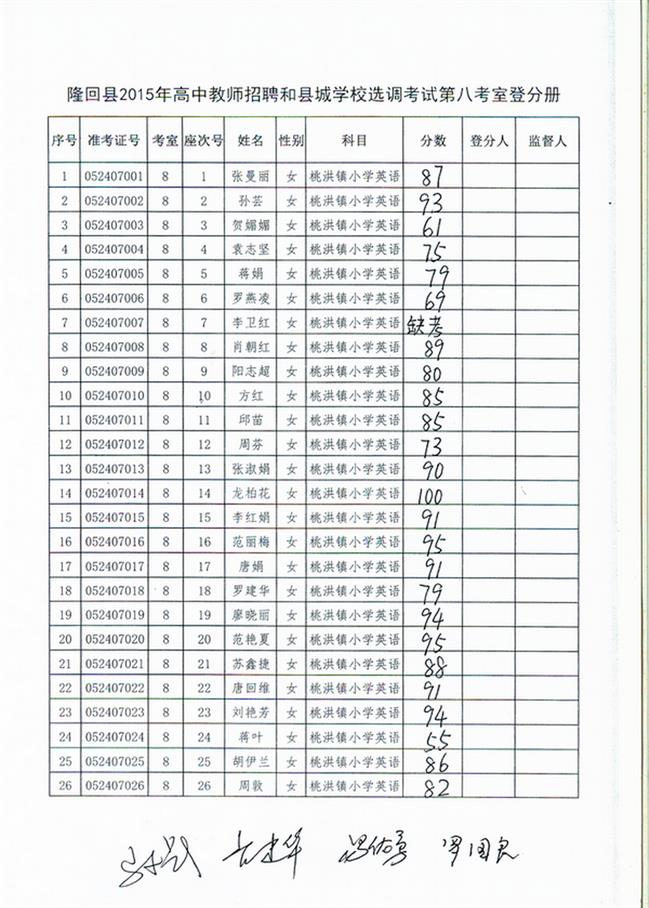 隆回县2015年高中教师招聘和县城学校选调考试第八考室登分册
序号 准考证号 考室 座次号 姓名 性别 科目 分数 登分人 监督人
1 052407001 8 1 张曼丽 女 桃洪镇小学英语 87
2 052407002 8 2 孙芸 女 桃洪镇小学英语 93
3 052407003 8 3 贺媚媚 女 桃洪镇小学英语 61
4 052407004 8 4 袁志坚 女 桃洪镇小学英语 75
5 052407005 8 5 蒋娟 女 桃洪镇小学英语 79
6 052407006 8 6 罗燕凌 女 桃洪镇小学英语 69
7 052407007 8 7 李卫红 女 桃洪镇小学英语 缺考
8 052407008 8 8 肖朝红 女 桃洪镇小学英语 89
9 052407009 8 9 阳志超 女 桃洪镇小学英语 80
10 052407010 8 10 方红 女 桃洪镇小学英语 85
11 052407011 8 11 邱苗 女 桃洪镇小学英语 85
12 052407012 8 12 周芬 女 桃洪镇小学英语 73
13 052407013 8 13 张淑娟 女 桃洪镇小学英语 90
14 052407014 8 14 龙柏花 女 桃洪镇小学英语 100
15 052407015 8 15 李红娟 女 桃洪镇小学英语 91
16 052407016 8 16 范丽梅 女 桃洪镇小学英语 95
17 052407017 8 17 唐娟 女 桃洪镇小学英语 91
18 052407018 8 18 罗建华 女 桃洪镇小学英语 79
19 052407019 8 19 廖晓丽 女 桃洪镇小学英语 94
20 052407020 8 20 范艳夏 女 桃洪镇小学英语 95
21 052407021 8 21 苏鑫捷 女 桃洪镇小学英语 88
22 052407022 8 22 唐回维 女 桃洪镇小学英语 91
23 052407023 8 23 刘艳芳 女 桃洪镇小学英语 94
24 052407024 8 24 蒋叶 女 桃洪镇小学英语 55
25 052407025 8 25 胡伊兰 女 桃洪镇小学英语 86
26 052407026 8 26 周敦 女 桃洪镇小学英语 82